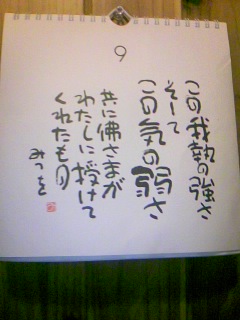 9
この我執の強さ
そして
この気の弱さ
共に佛さまが
わたしに授けて
くれたもの
みつを